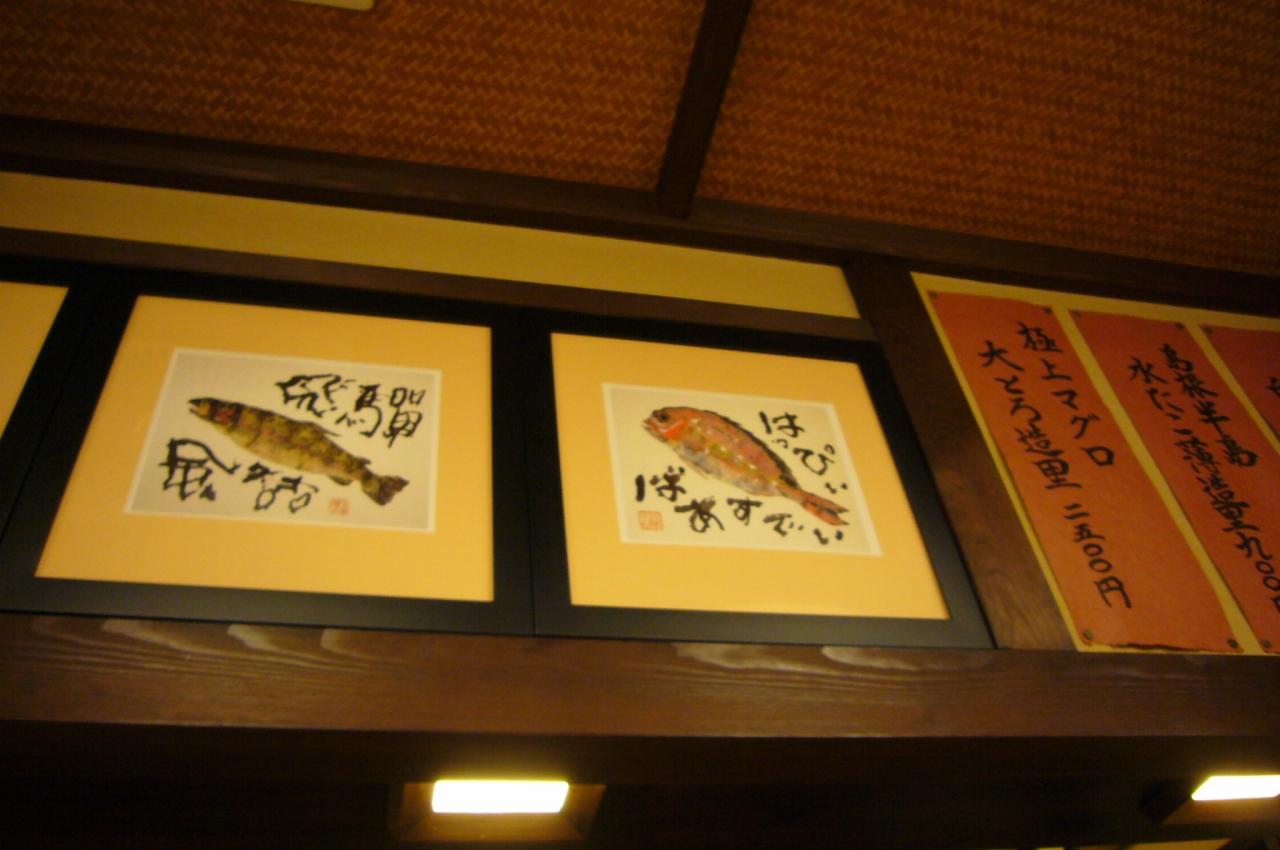 飛騨
はっぴぃ
ばぁすでい
極上マグロ
大とろ造里 二五〇〇円
島根半島
水だこ薄造里 九〇〇円